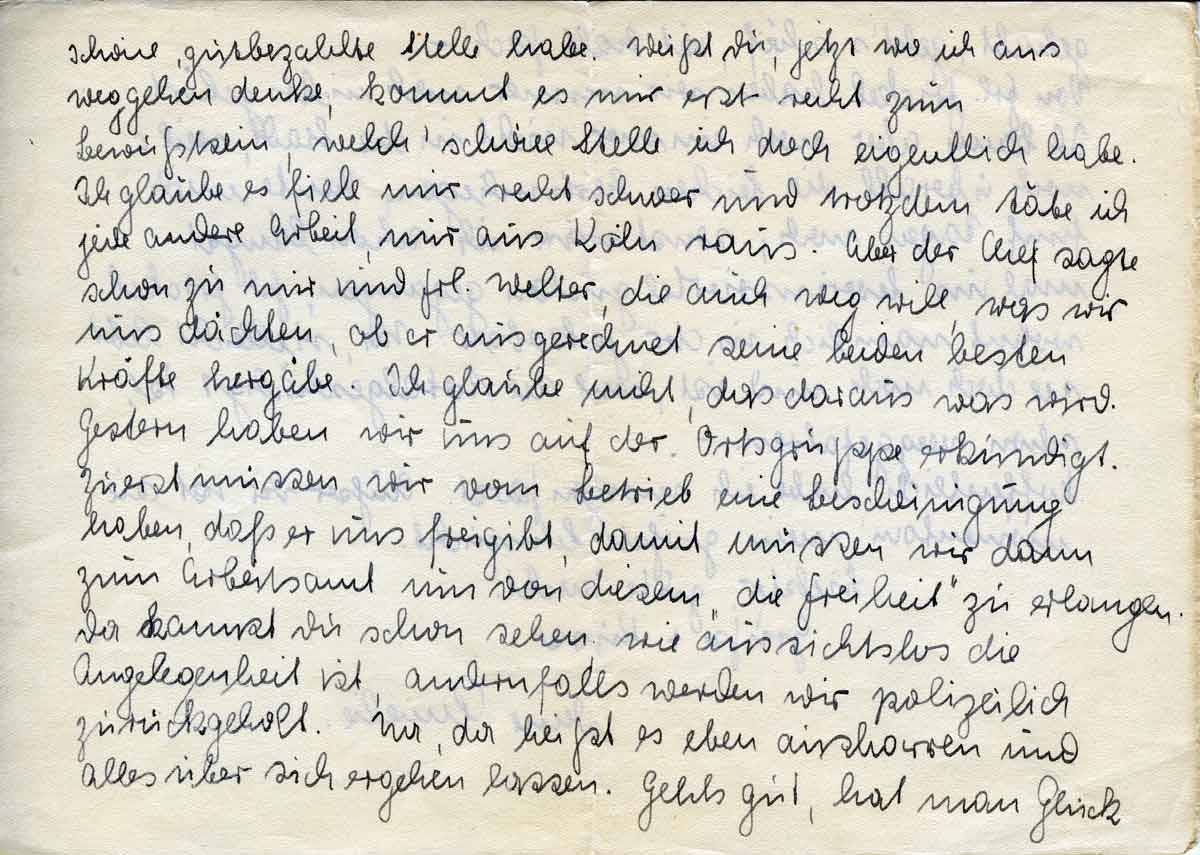 schöne, gutbezahlte Stelle habe. Weißt Du, jetzt wo ich ans
weggehen denke, kommt es mir erst recht zum
Bewußtsein, welch' schöne Stelle ich doch eigentlich habe.
Ich glaube es fiele mir recht schwer und trotzdem täte ich
jede andere Arbeit, nur aus Köln raus. Aber der Chef sagte
schon zu mir und Frl. Welter, die auch weg will, was wir
uns dächten, ob er ausgerechnet seine beiden besten
Kräfte hergäbe. Ich glaube nicht, das daraus was wird.
Gestern haben wir uns auf der Ortsgruppe erkündigt.
Zuerst müssen wir vom Betrieb eine Bescheinigung
haben, daß er uns freigibt, damit müssen wir dann
zum Arbeitsamt um von diesem „die Freiheit" zu erlangen.
Da kannst Du schon sehen wie aussichtslos die
Angelegenheit ist, andernfalls werden wir polizeilich
zurückgeholt. Na, da heißt es eben ausharren und
alles über sich ergehen lassen. Gehts gut, hat man Glück